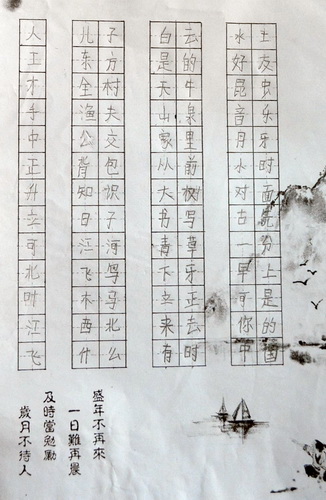 人 儿子 白云 水土
工 东方 是的 好友
才 全村 天牛 昆虫
手 渔夫 山泉 音乐
中 公交 家里 月牙
正 背包 从前 水时
升 知识 大树 对面
立 日子 书写 古
可 江河 青草 一分
北 飞鸟 下牙 早上
时 木马 立正 可是
江 西北 来去 你的
飞 什么 有时 中
盛年不再來
一日難再晨
及時當勉勵
歲月不待人